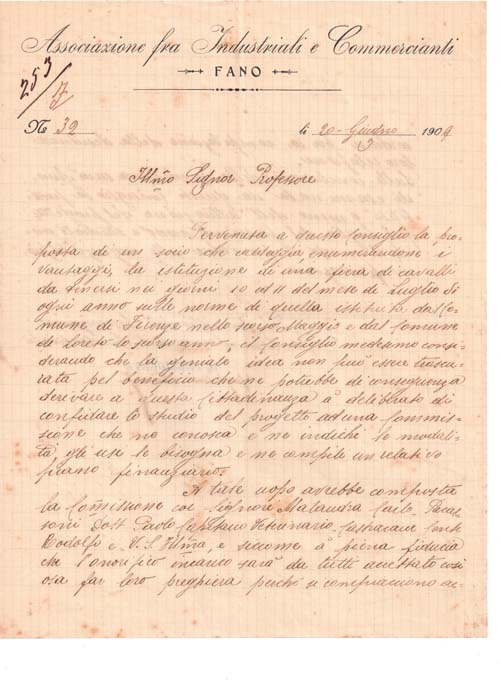 Associazione fra Industriali e Commercianti
FANO
253/17
N. 32 li 20 - Giugno 1909
Ill.mo Signor Professore
Pervenuta a questo Consiglio la pro-
posta di un socio che enumerandone i
vantaggi, la istituzione di una fiera di cavalli
da tenersi nei giorni 10 ed 11 del mese di Luglio di
ogni anno sulle norme di quella istituita dal Co-
mune di Firenze nello scorso Maggio e dal Comune
di Loreto lo scorso anno; il Consiglio medesimo consi-
derando che la geniale idea non può essere trascu-
rata pel beneficio che ne potrebbe di conseguenza
derivare a questa Cittadinanza à deliberato di
confidare lo studio del progetto ad una Commis-
sione che ne conosca e ne indichi le modali-
tà, gli usi le bisogna e ne compili un relativo
piano finanziario.
A tale uopo avrebbe composta
la Commissione coi Signori Malandra Carlo,
Dott. Paolo Capitano Veterinario, Castracane Conte
Rodolfo e V. S. Ill.ma, e siccome à piena fiducia
che l'onorifico incarico sarà da tutti accettato così
osa far loro preghiera perchè si compiacciano ac-